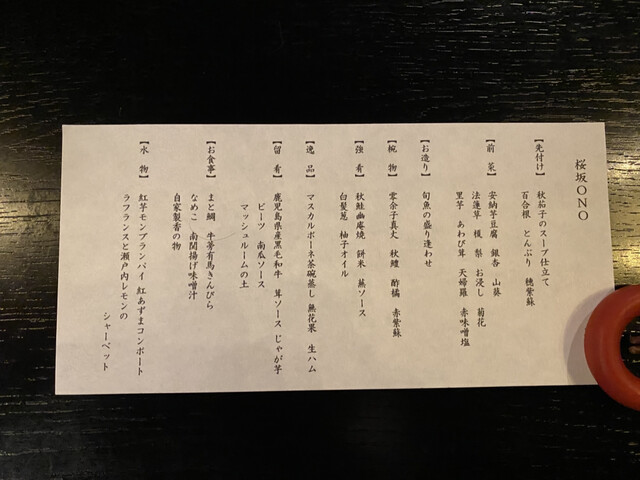 桜坂ONO
【先付け】 秋茄子のスープ仕立て
百合根 とんぶり 穂紫蘇
【前菜】 安納芋豆腐 銀杏 山葵
法蓮草 榎 梨 お浸し 菊花
里芋 あわび茸 天婦羅 赤味噌塩
【お造り】 旬魚の盛り逢わせ
【椀物】 零余子真丈 秋鱧 酢橘 赤紫蘇
【強肴】 秋鮭幽庵焼 餅米 蕪ソース
白髪葱 柚子オイル
【逸品】 マスカルポーネ茶碗蒸し 無花果 生ハム
【留肴】 鹿児島県産黒毛和牛 茸ソース じゃが芋
ビーツ 南瓜ソース
マッシュルームの土
【お食事】 まと鯛 牛蒡有馬きんぴら
なめこ 南関揚げ味噌汁
自家製香の物
【水物】 紅芋モンブランパイ 紅あずまコンポート
ラフランスと瀬戸内レモンの
シャーベット